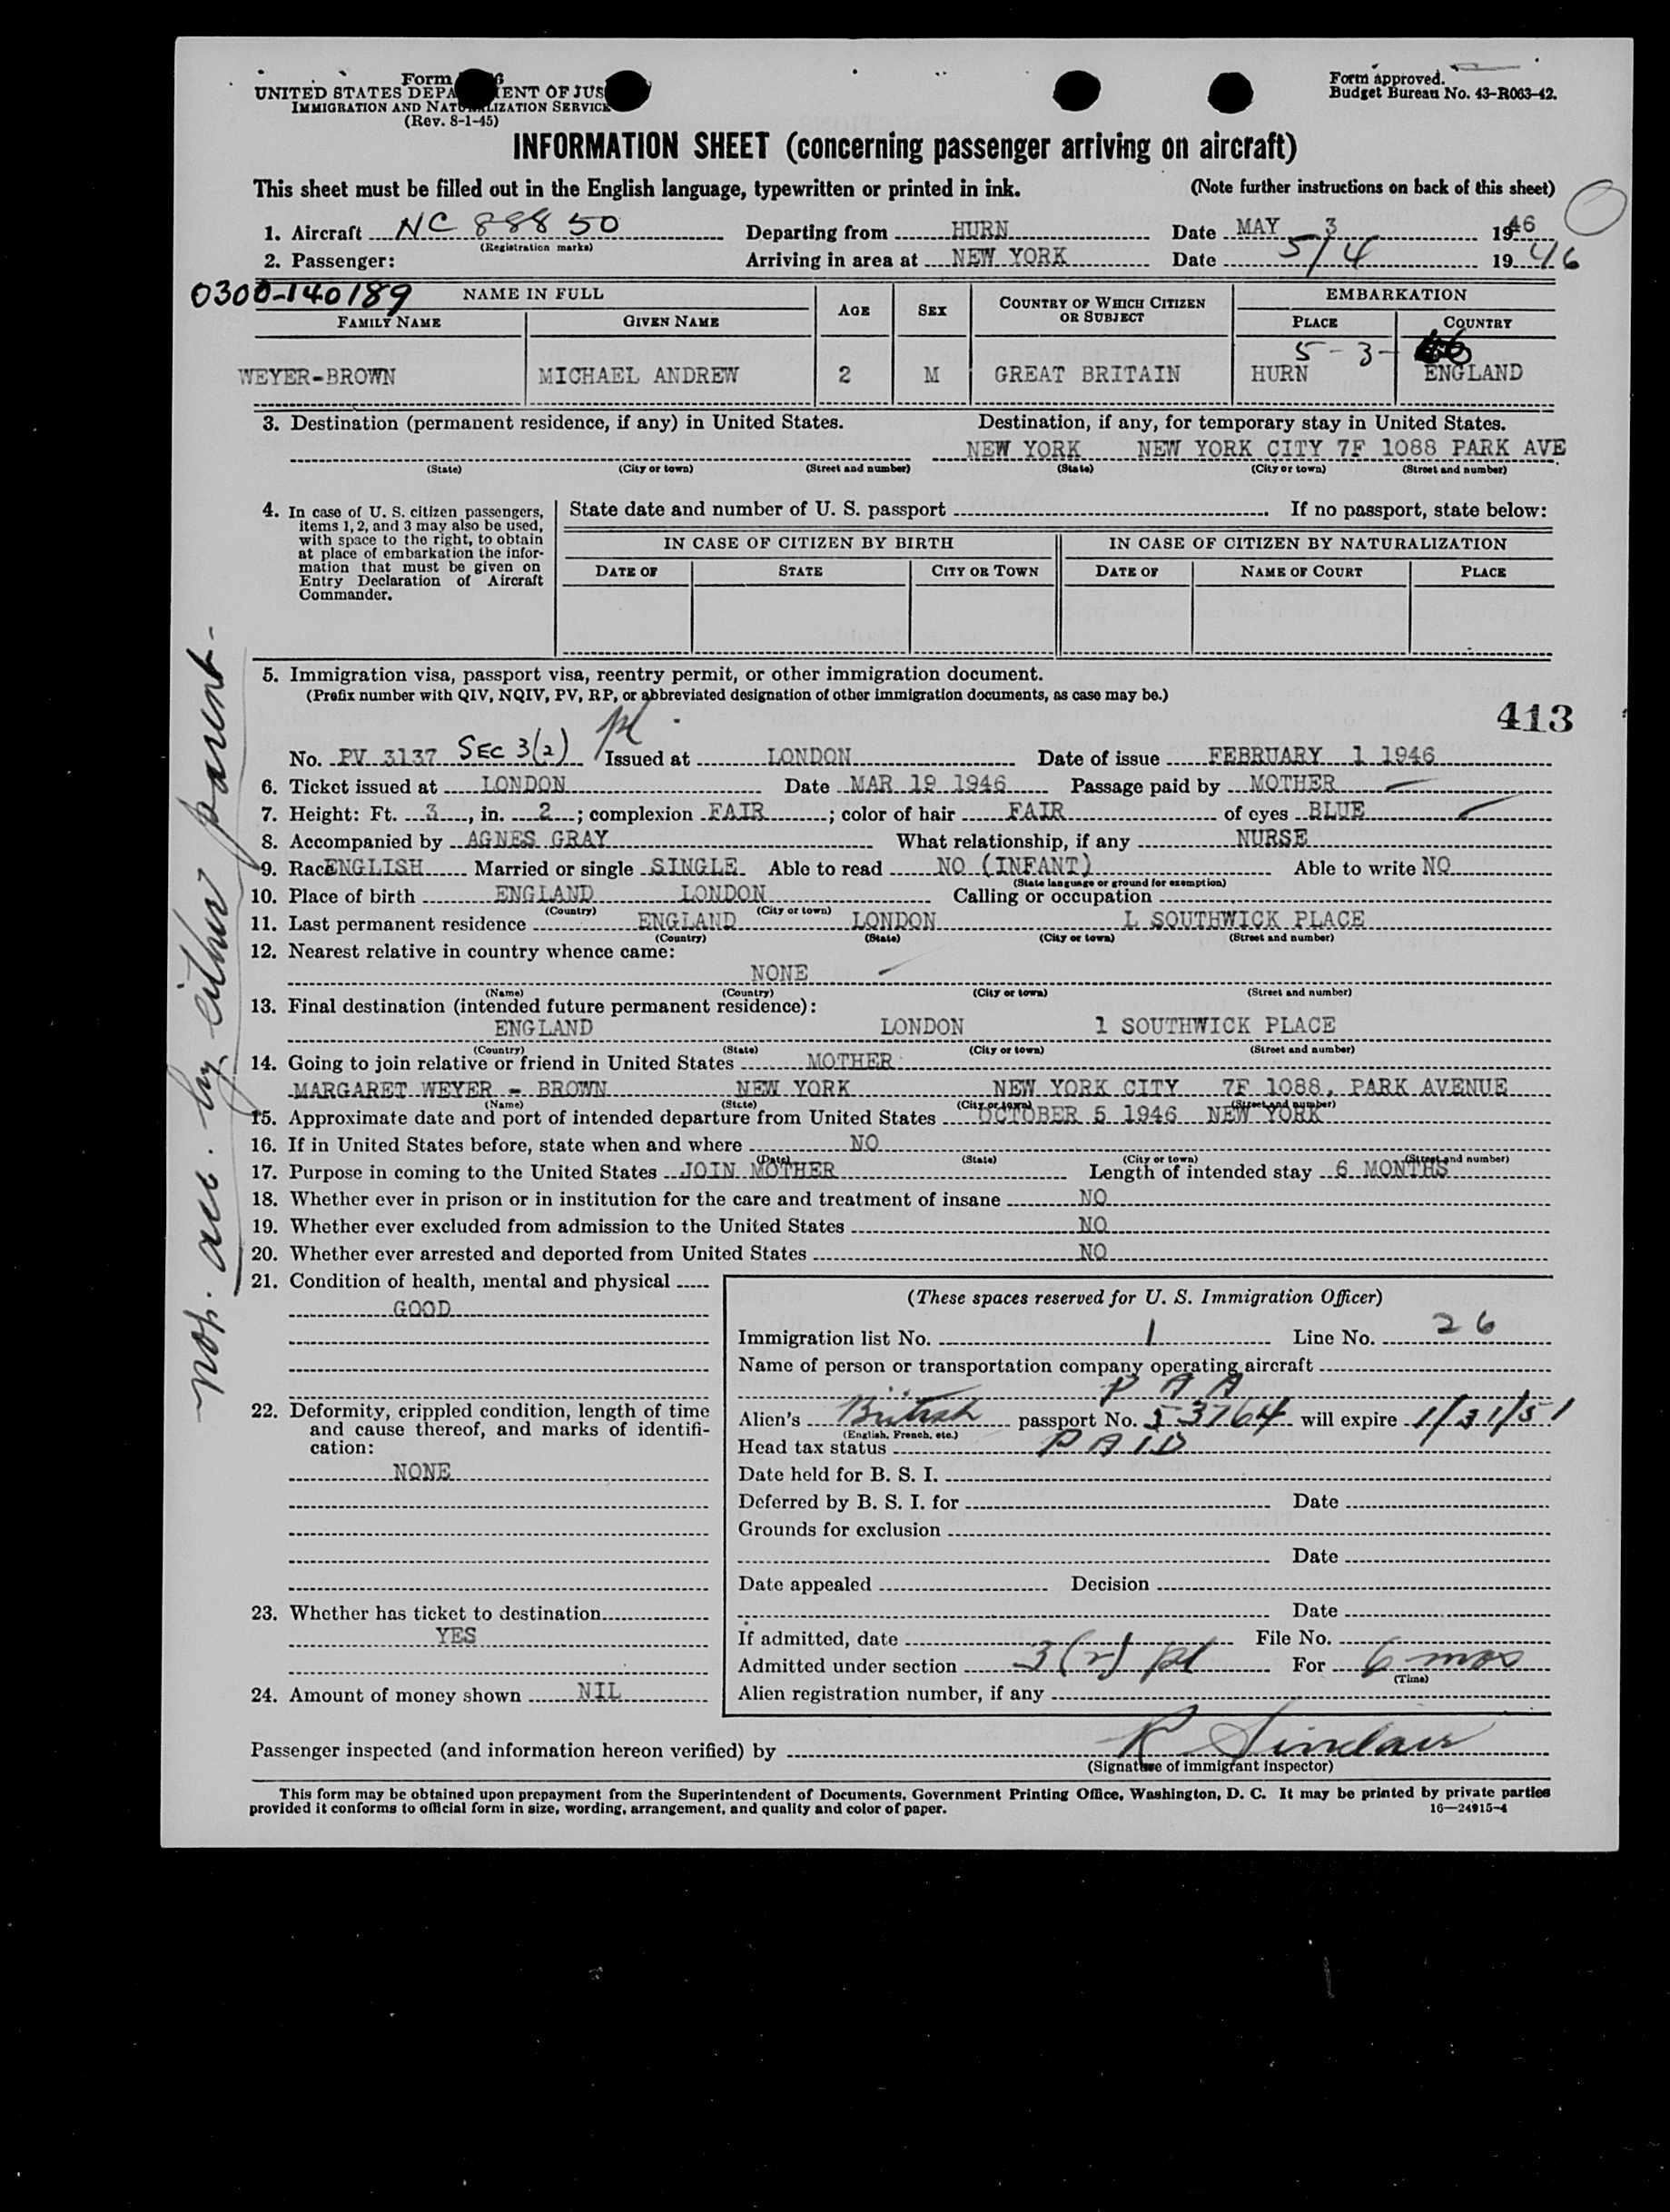 Form
UNITED STATES DEPA ENT OF JUS
IMMIGRATION AND NATURALIZATION SERVICE
(Rev. 8-1-45)
Form approved.
Budget Bureau No. 43-R063-42.
INFORMATION SHEET (concerning passenger arriving on aircraft)
This sheet must be filled out in the English language, typewritten or printed in ink. (Note further instructions on back of this sheet)
1. Aircraft NC 88850 Departing from HURN Date MAY 3 1946
(Registration marks)
2. Passenger: Arriving in area at NEW YORK Date 5/4 1946
0300-140189 NAME IN FULL AGE SEX COUNTRY OF WHICH CITIZEN OR SUBJECT EMBARKATION
FAMILY NAME GIVEN NAME PLACE COUNTRY
5-3-
WEYER-BROWN MICHAEL ANDREW 2 M GREAT BRITAIN HURN ENGLAND
3. Destination (permanent residence, if any) in United States. Destination, if any, for temporary stay in United States.
NEW YORK NEW YORK CITY 7F 1088 PARK AVE
(State) (City or town) (Street and number) (State) (City or town) (Street and number)
4. In case of U. S. citizen passengers, items 1, 2, and 3 may also be used, with space to the right, to obtain at place of embarkation the information that must be given on Entry Declaration of Aircraft Commander.
State date and number of U. S. passport If no passport, state below:
IN CASE OF CITIZEN BY BIRTH IN CASE OF CITIZEN BY NATURALIZATION
DATE OF STATE CITY OR TOWN DATE OF NAME OF COURT PLACE
5. Immigration visa, passport visa, reentry permit, or other immigration document.
(Prefix number with QIV, NQIV, PV, RP, or abbreviated designation of other immigration documents, as case may be.)
413
No. PV 3137 SEC 3(2) pl. Issued at LONDON Date of issue FEBRUARY 1 1946
6. Ticket issued at LONDON Date MAR 19 1946 Passage paid by MOTHER
7. Height: Ft. 3, in. 2; complexion FAIR; color of hair FAIR of eyes BLUE
8. Accompanied by AGNES GRAY What relationship, if any NURSE
9. Race ENGLISH Married or single SINGLE Able to read NO (INFANT) Able to write NO
(State language or ground for exemption)
10. Place of birth ENGLAND LONDON Calling or occupation
(Country) (City or town)
11. Last permanent residence ENGLAND LONDON L SOUTHWICK PLACE
(Country) (State) (City or town) (Street and number)
12. Nearest relative in country whence came:
NONE
(Name) (Country) (City or town) (Street and number)
13. Final destination (intended future permanent residence):
ENGLAND LONDON 1 SOUTHWICK PLACE
(Country) (State) (City or town) (Street and number)
14. Going to join relative or friend in United States MOTHER
MARGARET WEYER - BROWN NEW YORK NEW YORK CITY 7F 1088, PARK AVENUE
(Name) (State) (City or town) (Street and number)
15. Approximate date and port of intended departure from United States OCTOBER 5 1946 NEW YORK
16. If in United States before, state when and where NO
(Date) (State) (City or town) (Street and number)
17. Purpose in coming to the United States JOIN MOTHER Length of intended stay 6 MONTHS
18. Whether ever in prison or in institution for the care and treatment of insane NO
19. Whether ever excluded from admission to the United States NO
20. Whether ever arrested and deported from United States NO
not. acc. by either parent-
21. Condition of health, mental and physical
GOOD
22. Deformity, crippled condition, length of time
and cause thereof, and marks of identifi-
cation:
NONE
23. Whether has ticket to destination
YES
24. Amount of money shown NIL
(These spaces reserved for U. S. Immigration Officer)
Immigration list No. 1 Line No. 26
Name of person or transportation company operating aircraft
P A A
Alien's British passport No. 53764 will expire 1/31/51
(English, French, etc.)
Head tax status PAID
Date held for B. S. I.
Deferred by B. S. I. for Date
Grounds for exclusion
Date
Date appealed Decision
Date
If admitted, date File No.
Admitted under section 3(2) pl For 6 mos
(Time)
Alien registration number, if any
Passenger inspected (and information hereon verified) by R Sinclair
(Signature of immigrant inspector)
This form may be obtained upon prepayment from the Superintendent of Documents, Government Printing Office, Washington, D. C. It may be printed by private parties
provided it conforms to official form in size, wording, arrangement, and quality and color of paper. 16—24915-4